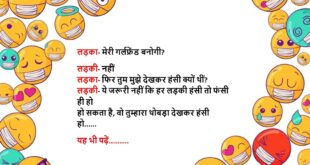 लड़का- मेरी गर्लफ्रेंड बनोगी?
लड़की- नहीं
लड़का- फिर तुम मुझे देखकर हंसी क्यों थीं?
लड़की- ये जरूरी नहीं कि हर लड़की हंसी तो फंसी
ही हो
हो सकता है, वो तुम्हारा थोबड़ा देखकर हंसी
हो......
यह भी पढ़ें..........